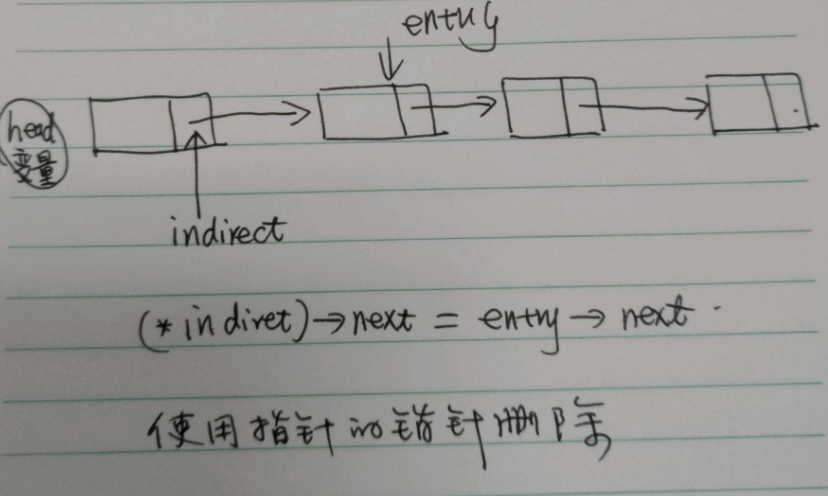 entry
head
变量
indirect
(* indiret)→next = entry → next
使用指针的指针删除